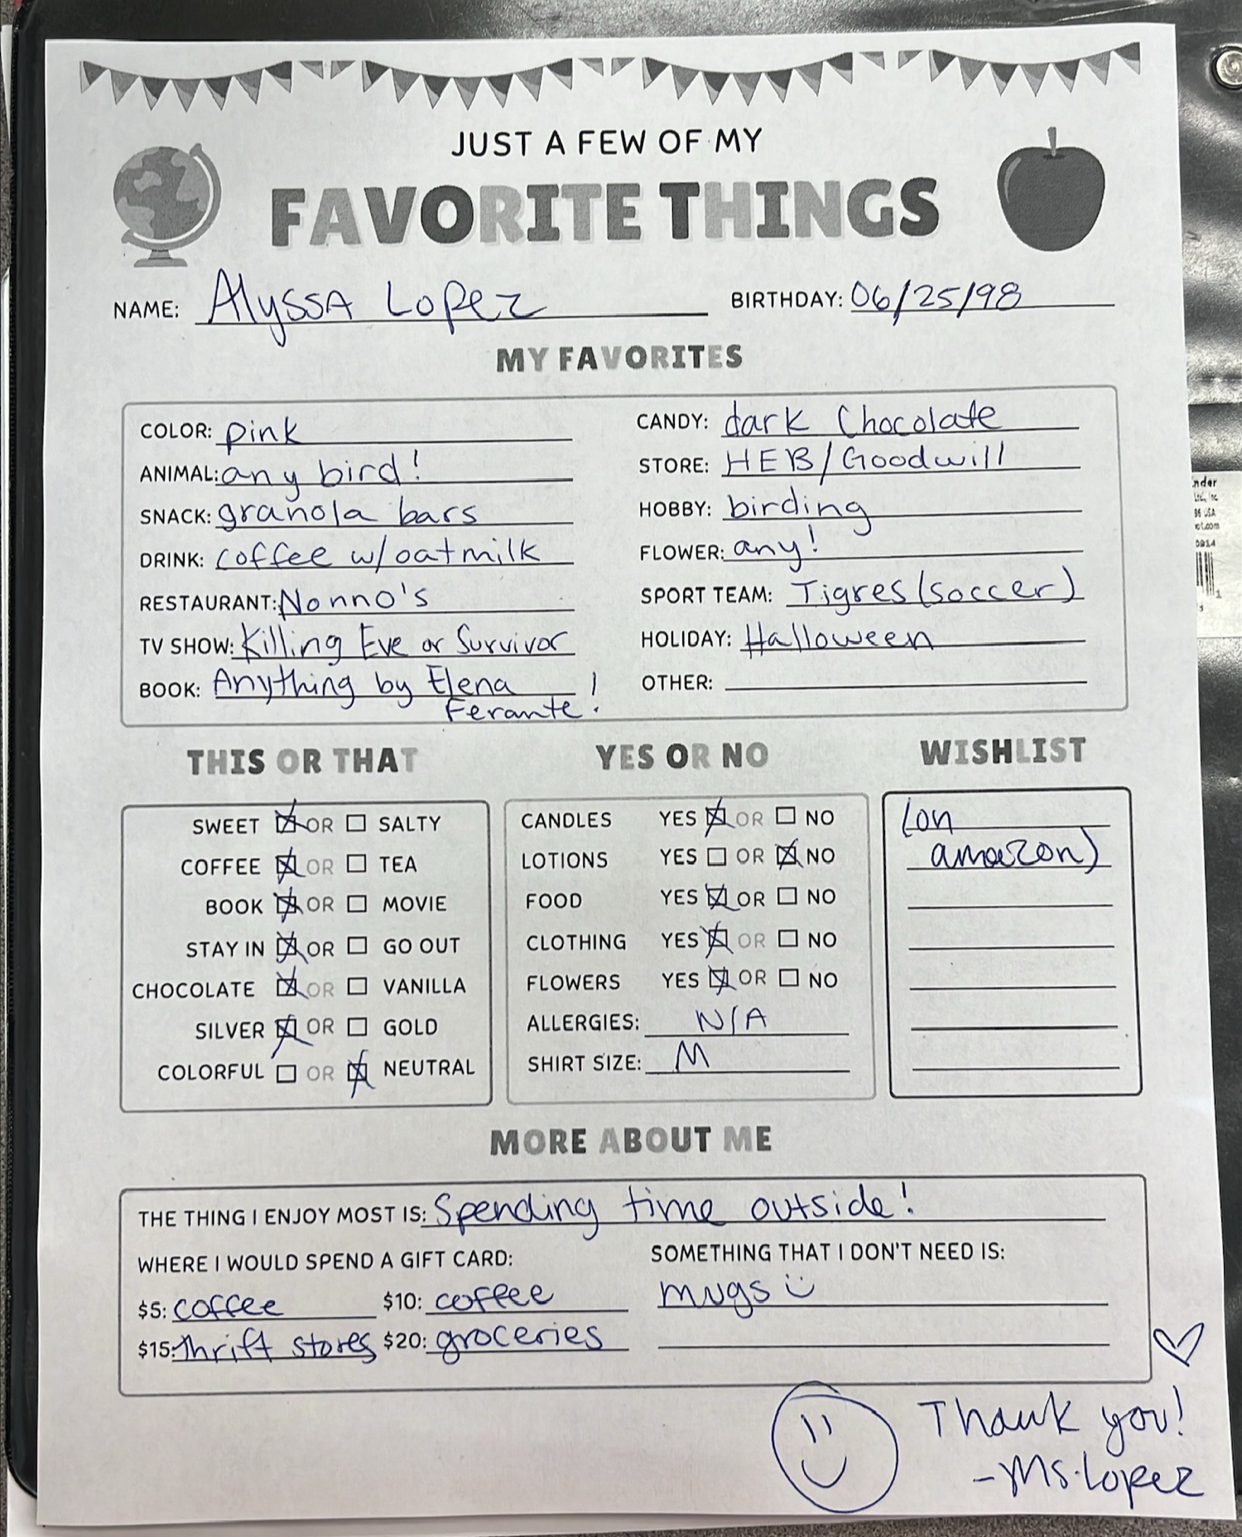 JUST A FEW OF MY
FAVORITE THINGS
NAME: Alyssa Lopez BIRTHDAY: 06/25/98
MY FAVORITES
COLOR: pink
ANIMAL: any bird!
SNACK: granola bars
DRINK: coffee w/oatmilk
RESTAURANT: Nonno's
TV SHOW: Killing Eve or Survivor
BOOK: Anything by Elena
Ferante!
CANDY: dark Chocolate
STORE: HEB/Goodwill
HOBBY: birding
FLOWER: any!
SPORT TEAM: Tigres (soccer)
HOLIDAY: Halloween
OTHER:
THIS OR THAT
SWEET ☒ OR ☐ SALTY
COFFEE ☒ OR ☐ TEA
BOOK ☒ OR ☐ MOVIE
STAY IN ☒ OR ☐ GO OUT
CHOCOLATE ☒ OR ☐ VANILLA
SILVER ☒ OR ☐ GOLD
COLORFUL ☐ OR ☒ NEUTRAL
YES OR NO
CANDLES YES ☒ OR ☐ NO
LOTIONS YES ☐ OR ☒ NO
FOOD YES ☒ OR ☐ NO
CLOTHING YES ☒ OR ☐ NO
FLOWERS YES ☒ OR ☐ NO
ALLERGIES: N/A
SHIRT SIZE: M
WISHLIST
(on
amazon)
MORE ABOUT ME
THE THING I ENJOY MOST IS: Spending time outside!
WHERE I WOULD SPEND A GIFT CARD:
$5: coffee $10: coffee
$15: thrift stores $20: groceries
SOMETHING THAT I DON'T NEED IS:
mugs
Thank you!
-Ms. Lopez